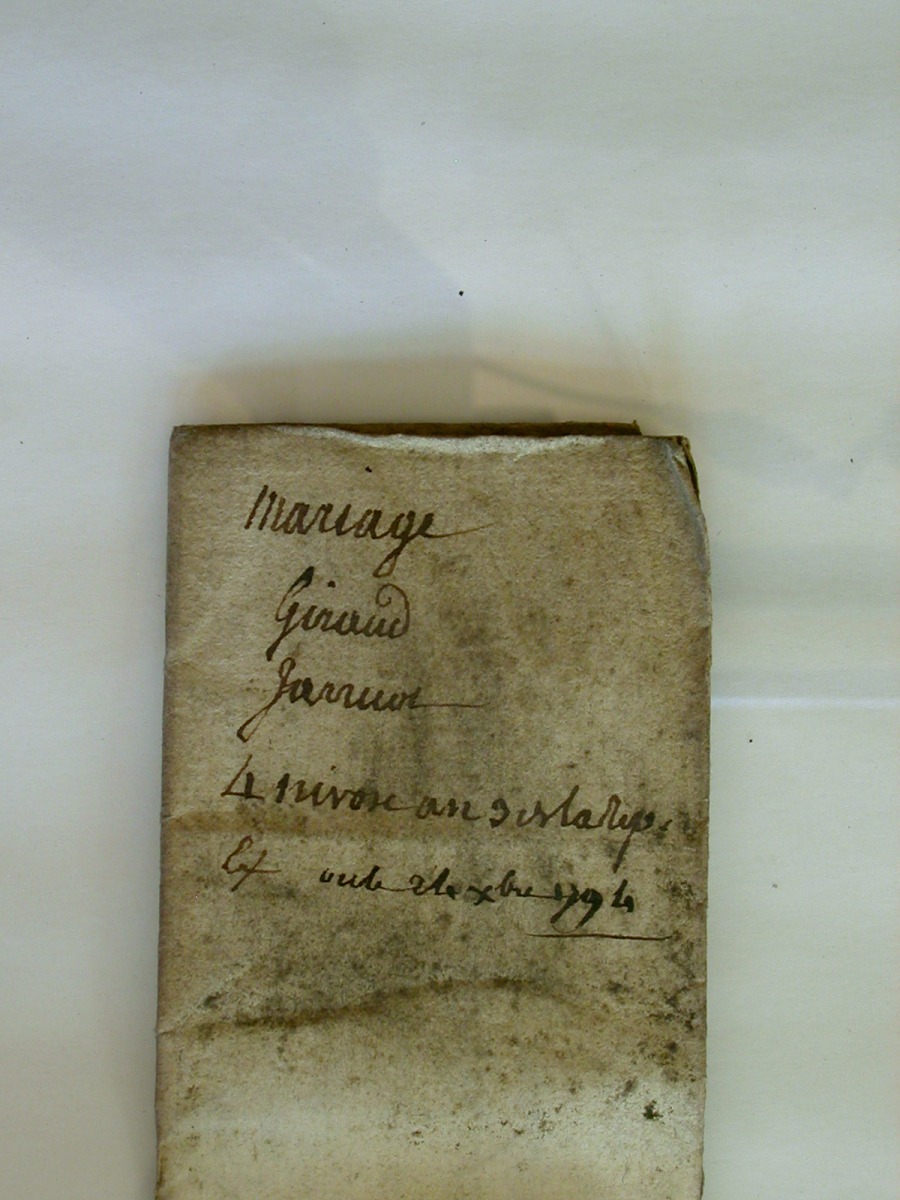 Mariage
Giraud
Jarruot
4 nivose an 3 de la Rep.
Ex ou le 24 xbre 1794